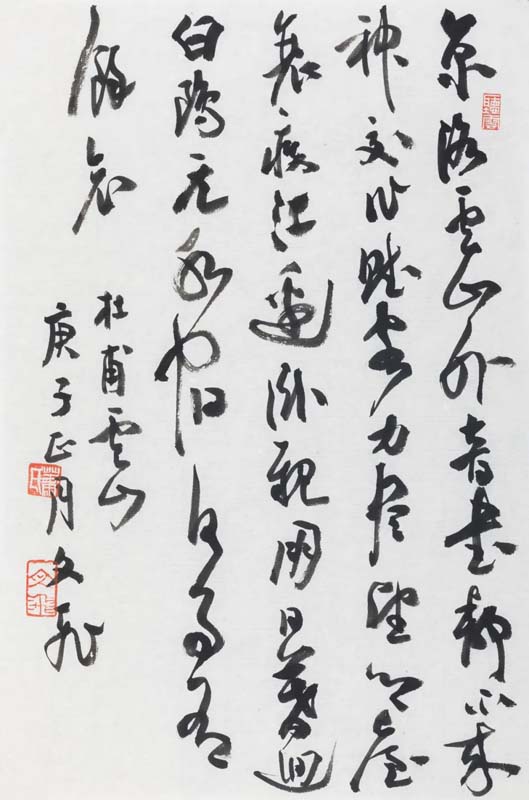 京洛雲山外音書靜不来
神交作賦客力盡望鄉臺
衰疾江邊卧親朋日暮迴
白鷗元水宿何事有
餘哀
杜甫雲山
庚子正月文飛